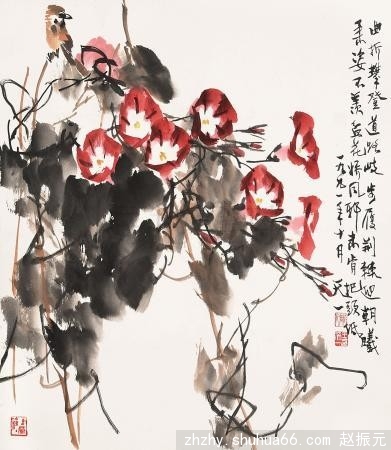 曲折攀登道路岐步履荆棘迎朝曦
柔姿不羡盆花娇同耶未肯把頭低
一九九一年十月 天一
zhzhy.shuhua66.com 赵振元